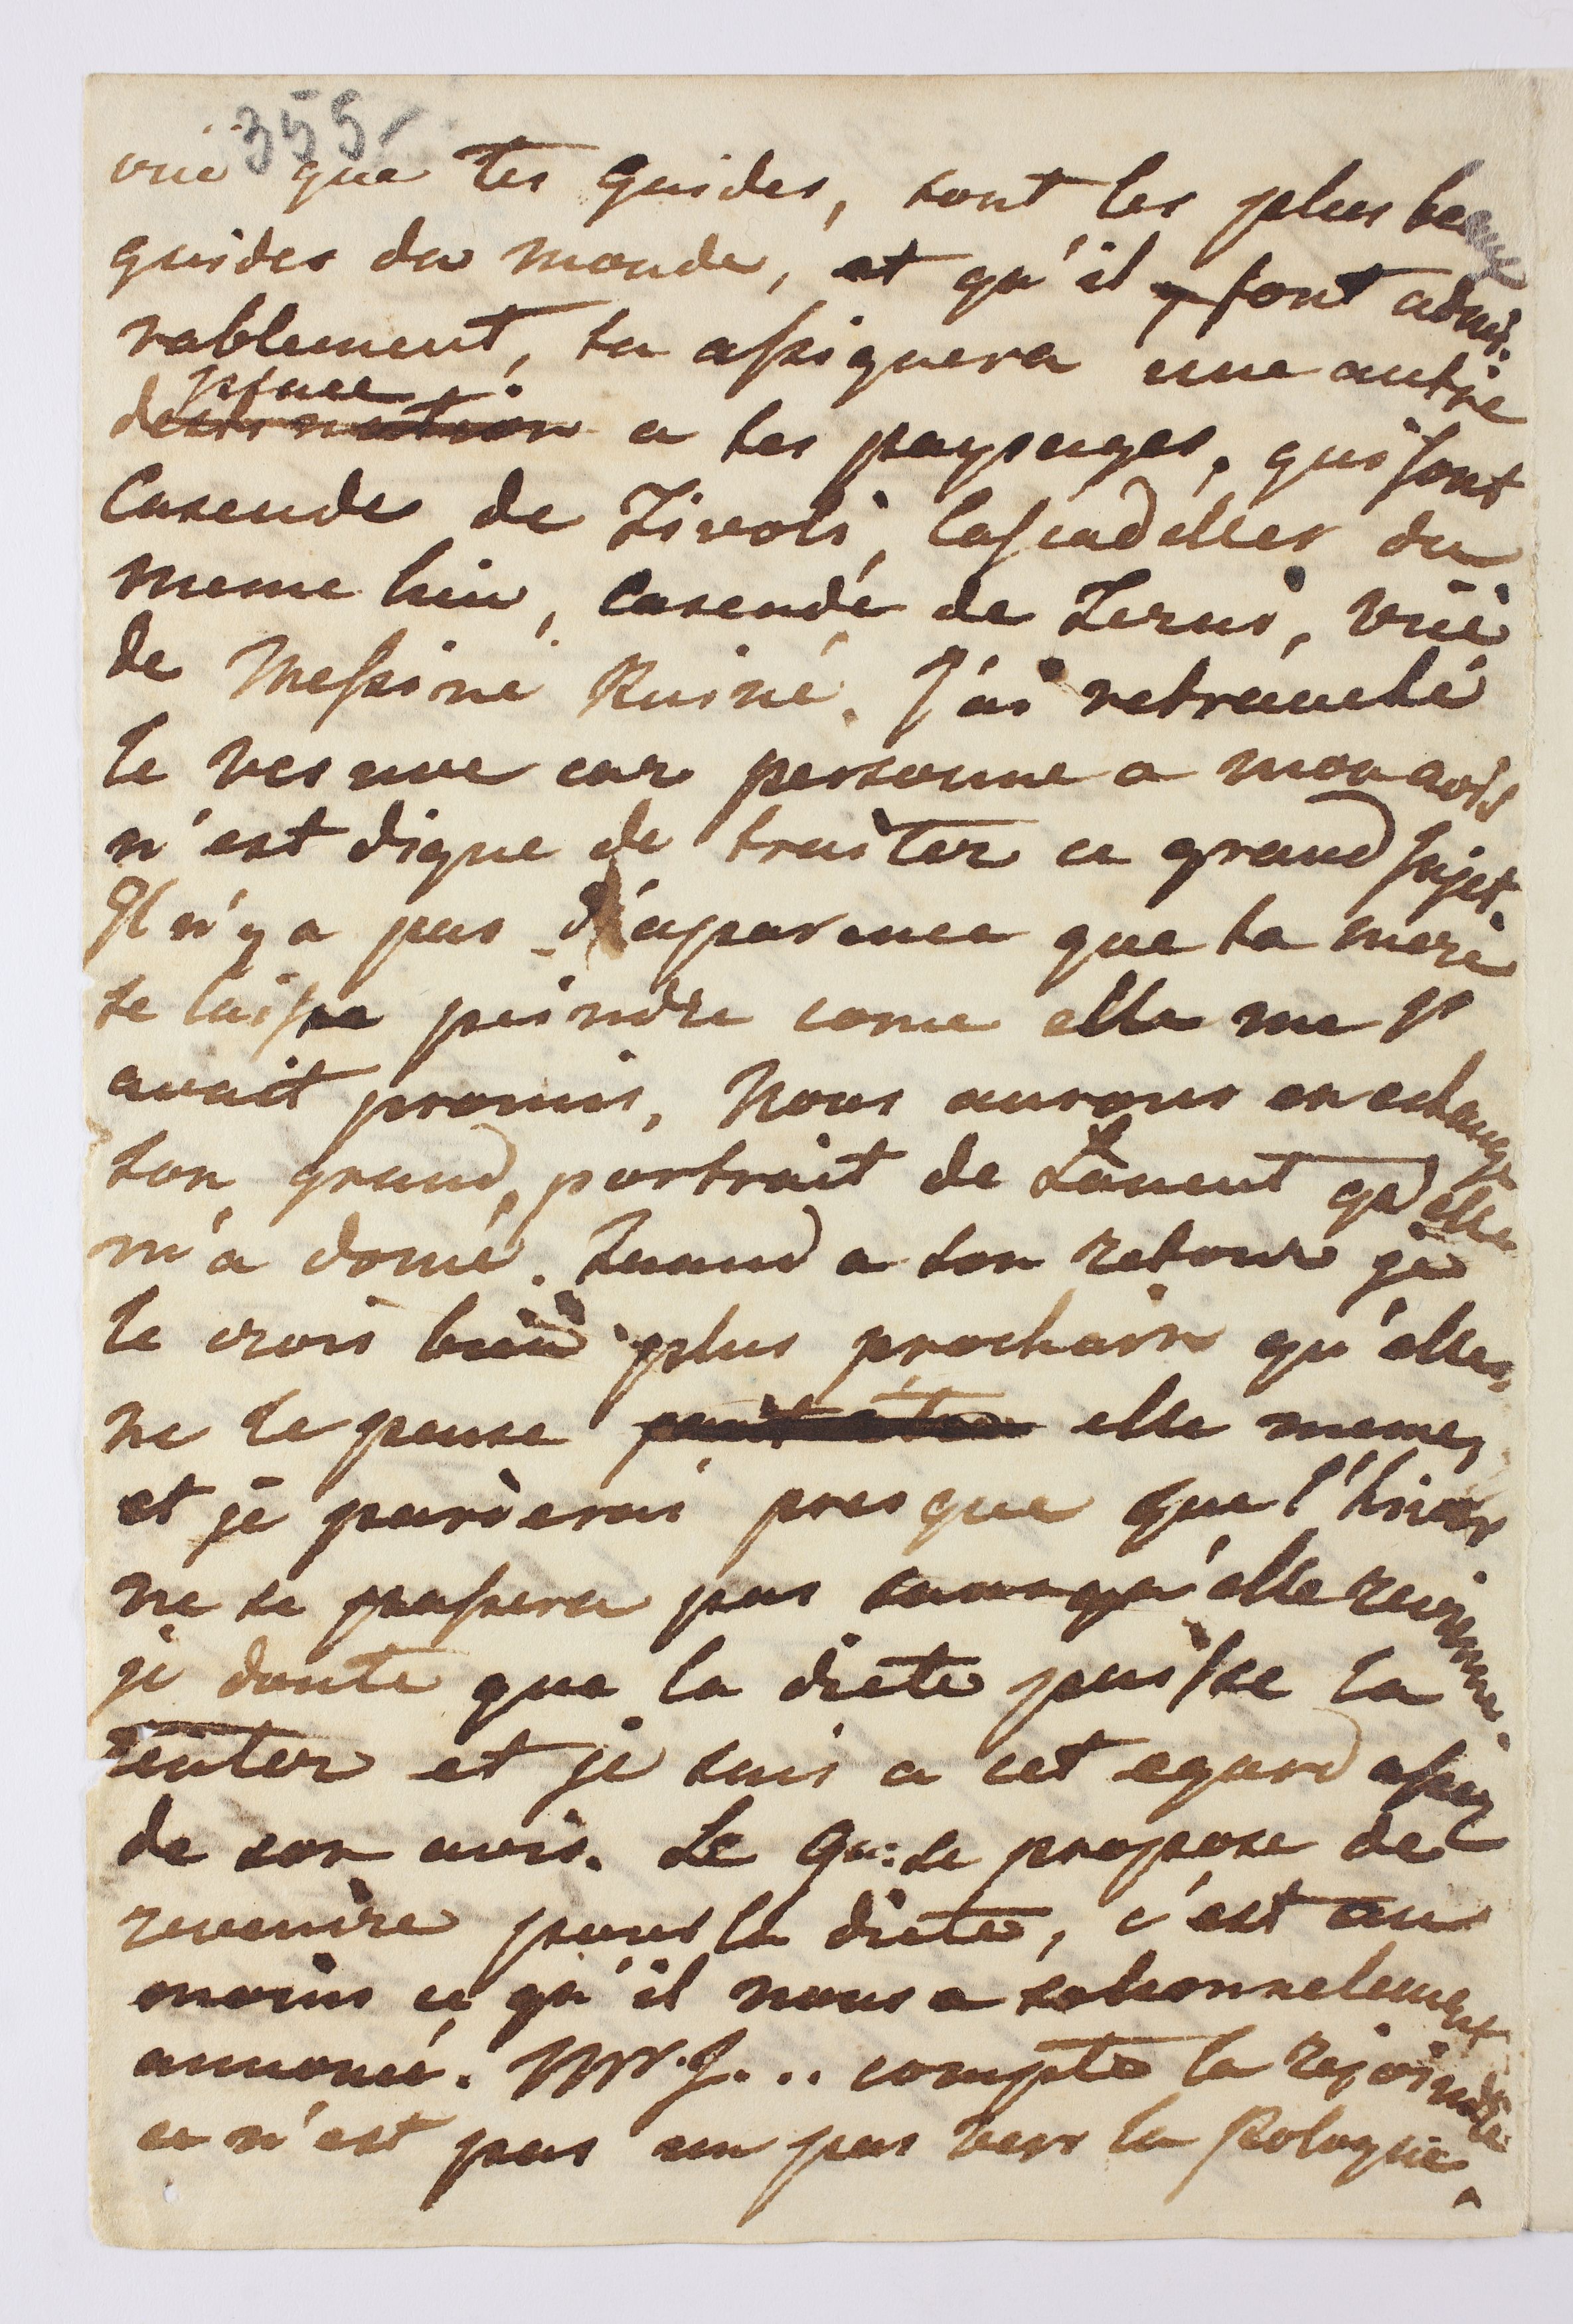 355
vüe que tes Guides, sont les plus beaux
guides du monde, et qu'il y font admi-
rablement, tu assignera une autre
place
destination a tes paysages, qui sont
Cascade de Tivoli, Cascadelles du
meme lieu, Cascade de Terni, vüe
de Messine Ruiné. J'ai retranché
le Vesuve car personne a mon avis
n'est digne de traiter ce grand sujet.
Il n'y a pas d'aparence que ta mere
se laisse peindre come elle me l'
avait promis, Nous aurons en echange
son grand portrait de qu'elle
m'a doné. Quand a son retour je
le crois bien plus prochain qu'elle
ne le pense peut etre elle meme,
et je parierai presque que l'hiver
ne se passera pas sans qu'elle revienne.
je doute que la diete puisse la
tenter et je suis a cet egard assez
de son avis. Le G: se propose de
revenire pour la diete, c'est au
moins ce qu'il nous a solonnelement
annoncé. Mr. J... compte la rejoindre
ce n'est pas un pas vers la Pologne.